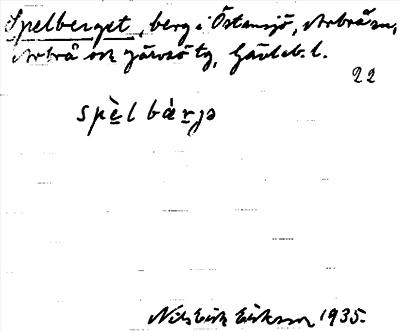 Spelberget, berg i Östansjö, Arbrå sn,
Arbrå och Järvsö tg, Gävleb. l.
22
spè̱l bá̱rjə
Nils Erik Eriksson 1935.